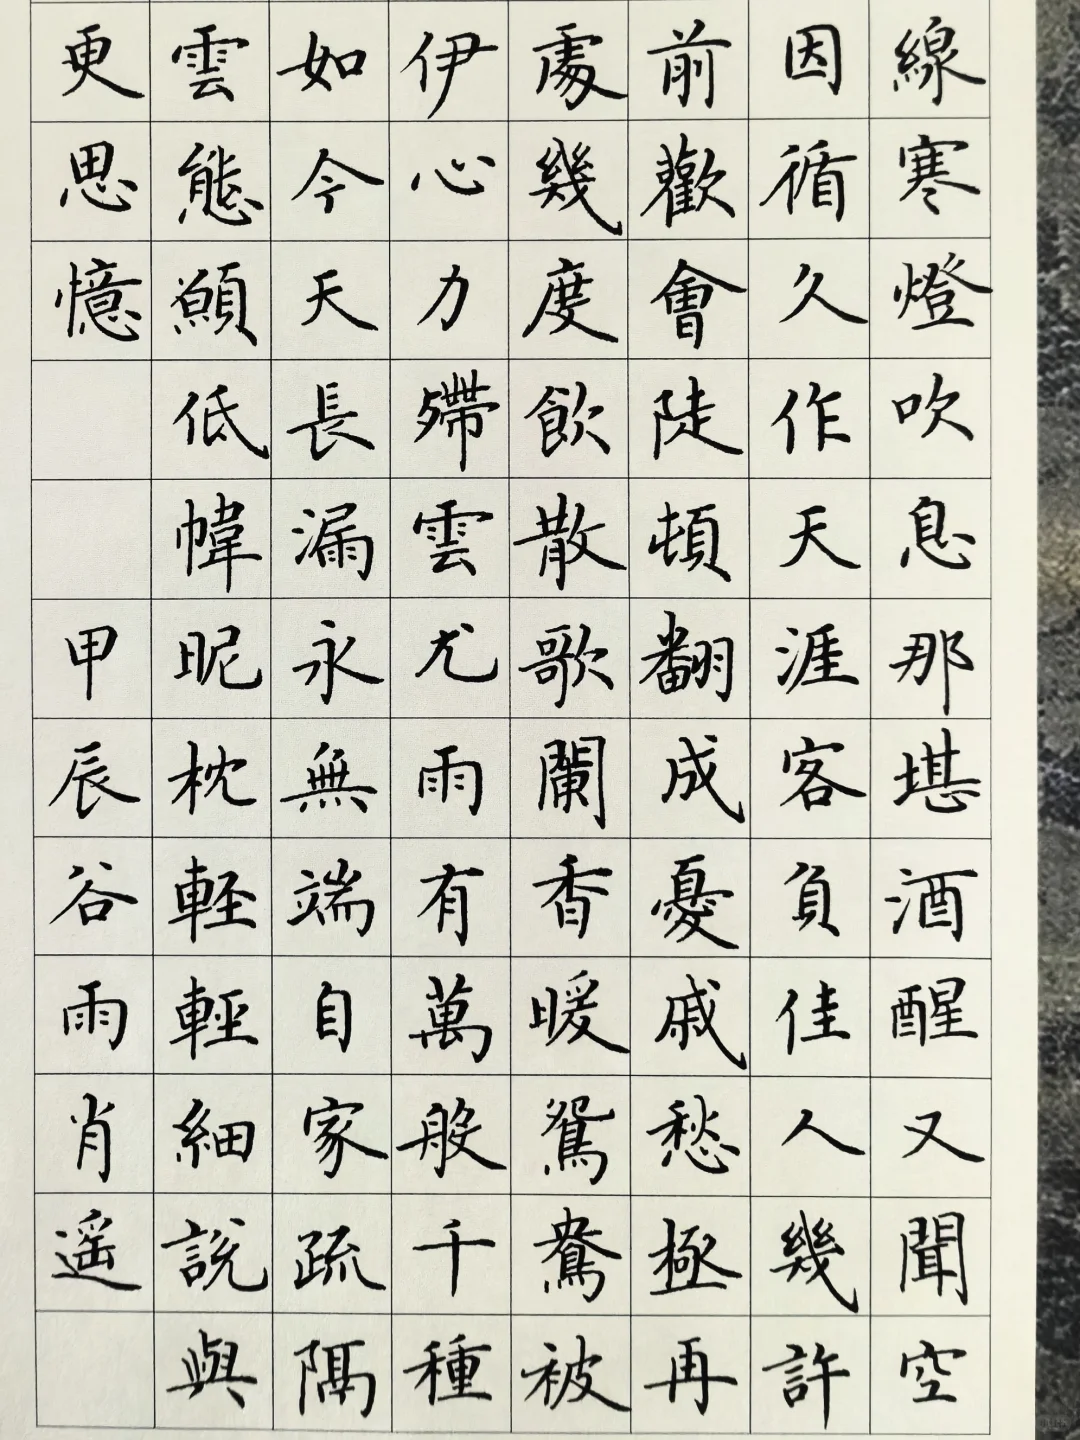 線寒燈吹息那堪酒醒又聞空
因循久作天涯客負佳人幾許
前歡會陡頓翻成憂戚愁極再
處幾度飲散歌闌香暖鴛鴦被
伊心力殢雲尤雨有萬般千種
如今天長漏永無端自家疏隔
雲態願低幃昵枕輕輕細説與
更思憶 甲辰谷雨肖遥